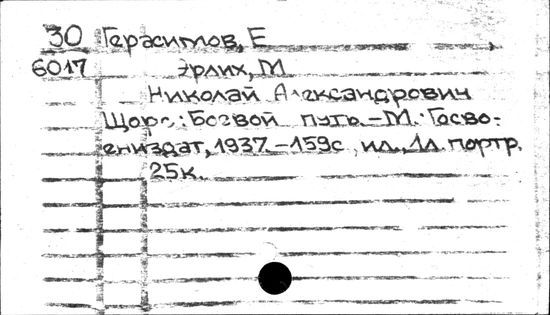 30 Герасимов, Е
6017 Эрлих, М
Николай Александрович
Щорс: Боевой путь.-М.: Госво-
ениздат, 1937.-159с, ил., 1л. портр.
25к.